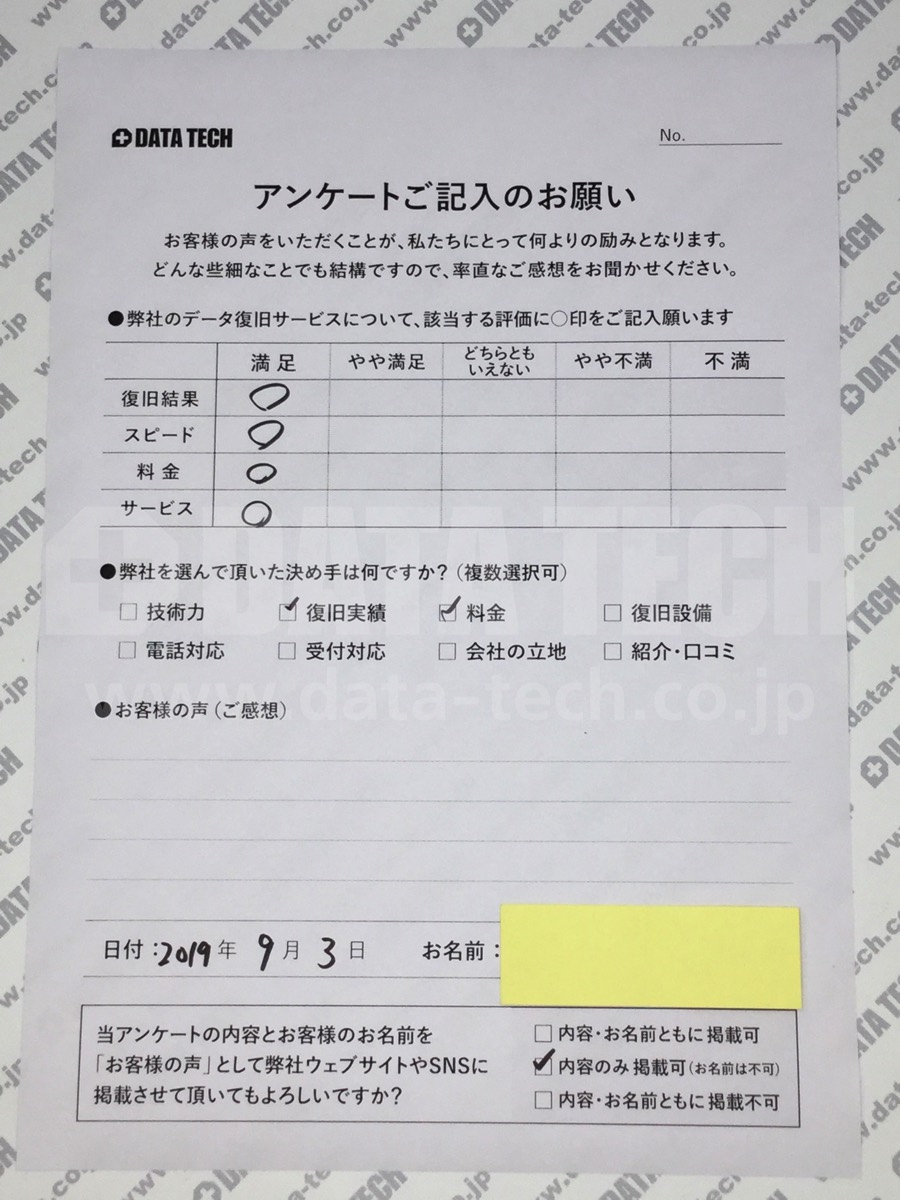 DATA TECH
No.
アンケートご記入のお願い
お客様の声をいただくことが、私たちにとって何よりの励みとなります。
どんな些細なことでも結構ですので、率直なご感想をお聞かせください。
●弊社のデータ復旧サービスについて、該当する評価に○印をご記入願います
満足 やや満足 どちらとも やや不満 不満
いえない
復旧結果 ○
スピード ○
料金 ○
サービス ○
DATA TECH
●弊社を選んで頂いた決め手は何ですか?(複数選択可)
□ 技術力 ☑ 復旧実績 ☑ 料金 □ 復旧設備
□ 電話対応 □ 受付対応 □ 会社の立地 □ 紹介・口コミ
www.data-tech.co.jp
●お客様の声(ご感想)
日付:2019年 9月 3日 お名前:
当アンケートの内容とお客様のお名前を
「お客様の声」として弊社ウェブサイトやSNSに
掲載させて頂いてもよろしいですか?
□ 内容・お名前ともに掲載可
☑ 内容のみ掲載可(お名前は不可)
□ 内容・お名前ともに掲載不可